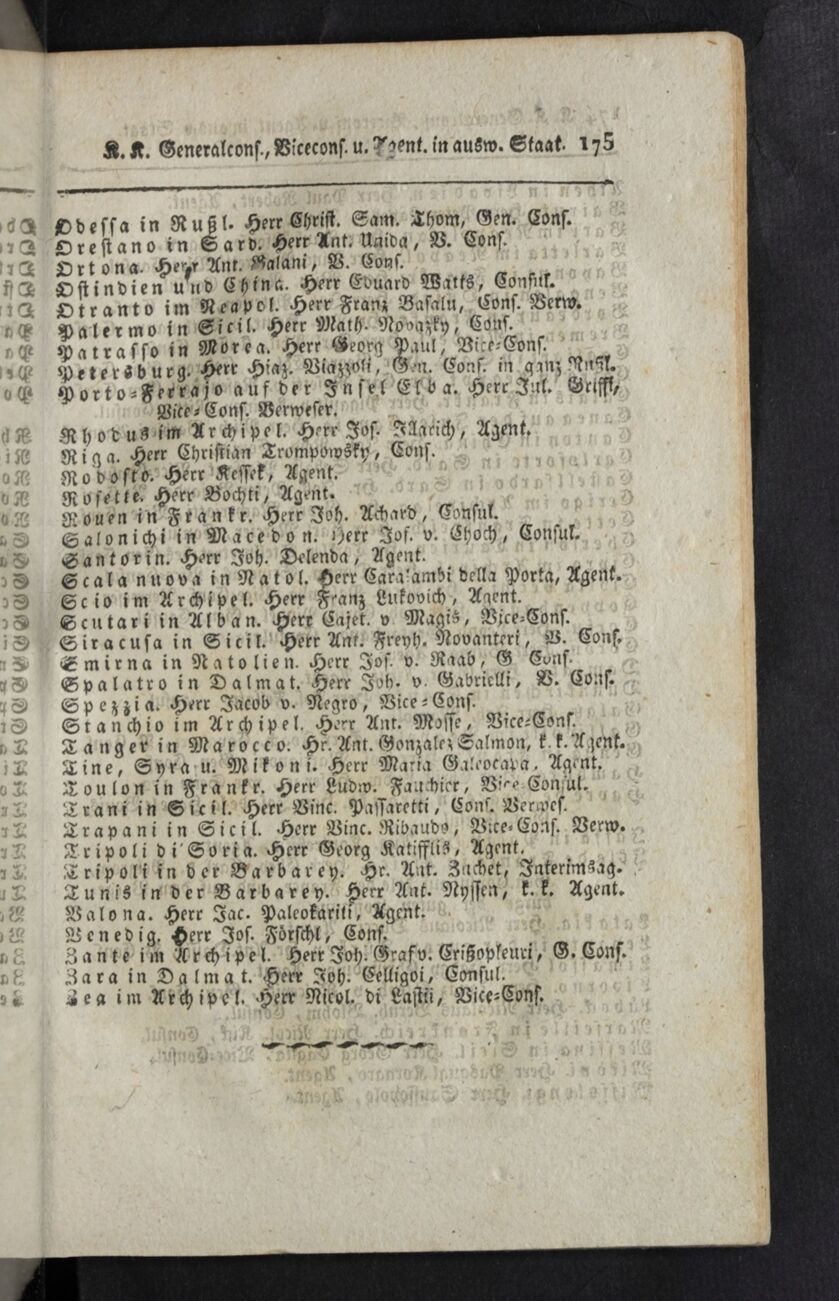 K. K. Generalcons., Vicecons. u. Agent. in ausw. Staat. 175
Odessa in Rußl. Herr Christ. Sam. Thom, Gen. Cons.
Orestano in Sard. Herr Ant. Unida, V. Cons.
Ortona. Herr Ant. Balani, V. Cons.
Ostindien und China. Herr Eduard Watts, Consul.
Otranto im Neapol. Herr Franz Basalu, Cons. Verw.
Palermo in Sicil. Herr Math. Novazky, Cons.
Patrasso in Morea. Herr Georg Paul, Vice-Cons.
Petersburg. Herr Hiaz. Viazzoli, Gen. Cons. in ganz Rußl.
Porto-Ferrajo auf der Insel Elba. Herr Jul. Griffi,
Vice-Cons. Verweser.
Rhodus im Archipel. Herr Jos. Agent.
Riga. Herr Christian Trompowsky, Cons.
Rodosto. Herr Kessek, Agent.
Rosette. Herr Bochti, Agent.
Rouen in Frankr. Herr Joh. Achard, Consul.
Salonichi in Macedon. Herr Jos. v. Choch, Consul.
Santorin. Herr Joh. Delenda, Agent.
Scala nuova in Natol. Herr Caralambi della Porta, Agent.
Scio im Archipel. Herr Franz Lukovich, Agent.
Scutari in Alban. Herr Cajet. v. Magis, Vice-Cons.
Siracusa in Sicil. Herr Ant. Freyh. Novanteri, V. Cons.
Smirna in Natolien. Herr Jos. v. Raab, G. Cons.
Spalatro in Dalmat. Herr Joh. v. Gabrielli, V. Cons.
Spezzia. Herr Jacob v. Negro, Vice-Cons.
Stanchio im Archipel. Herr Ant. Mosse, Vice-Cons.
Tanger in Marocco. Hr. Ant. Gonzalez Salmon, k. k. Agent.
Tine, Syra u. Mikoni. Herr Maria Galeocapa, Agent.
Toulon in Frankr. Herr Ludw. Fauchier, Vice-Consul.
Trani in Sicil. Herr Vinc. Passaretti, Cons. Verwes.
Trapani in Sicil. Herr Vinc. Ribaudo, Vice-Cons. Verw.
Tripoli di Soria. Herr Georg Katifflis, Agent.
Tripoli in der Barbarey. Hr. Ant. Zuchet, Interimsag.
Tunis in der Barbarey. Herr Ant. Nyssen, k. k. Agent.
Valona. Herr Jac. Paleokariti, Agent.
Venedig. Herr Jos. Förschl, Cons.
Zante im Archipel. Herr Joh. Graf v. Crißopleuri, G. Cons.
Zara in Dalmat. Herr Joh. Celligoi, Consul.
Zea im Archipel. Herr Nicol. di Lastii, Vice-Cons.